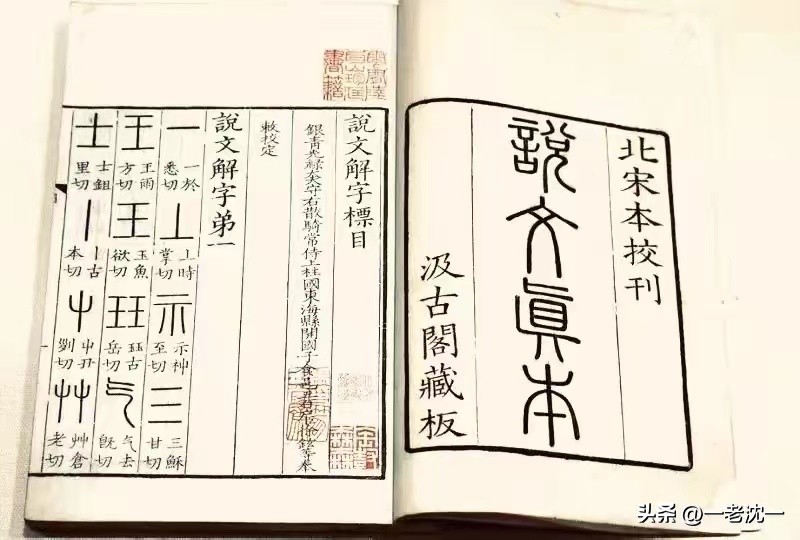 北宋本挍刊
說文眞本
汲古閣藏板
說文解字標目
銀青光祿大夫守右散騎常侍上柱國東海縣開國子食邑五百戶臣徐鉉等奉
敕挍定
說文解字弟一
一 一於悉切 丄 丄時掌切 示 示神至切 三 三穌甘切
王 王雨方切 玉 玉魚欲切 玨 玨古岳切 气 气去旣切
士 士鉏里切 丨 丨古本切 屮 屮丑列切 艸 艸倉老切
头条 @一老沈一